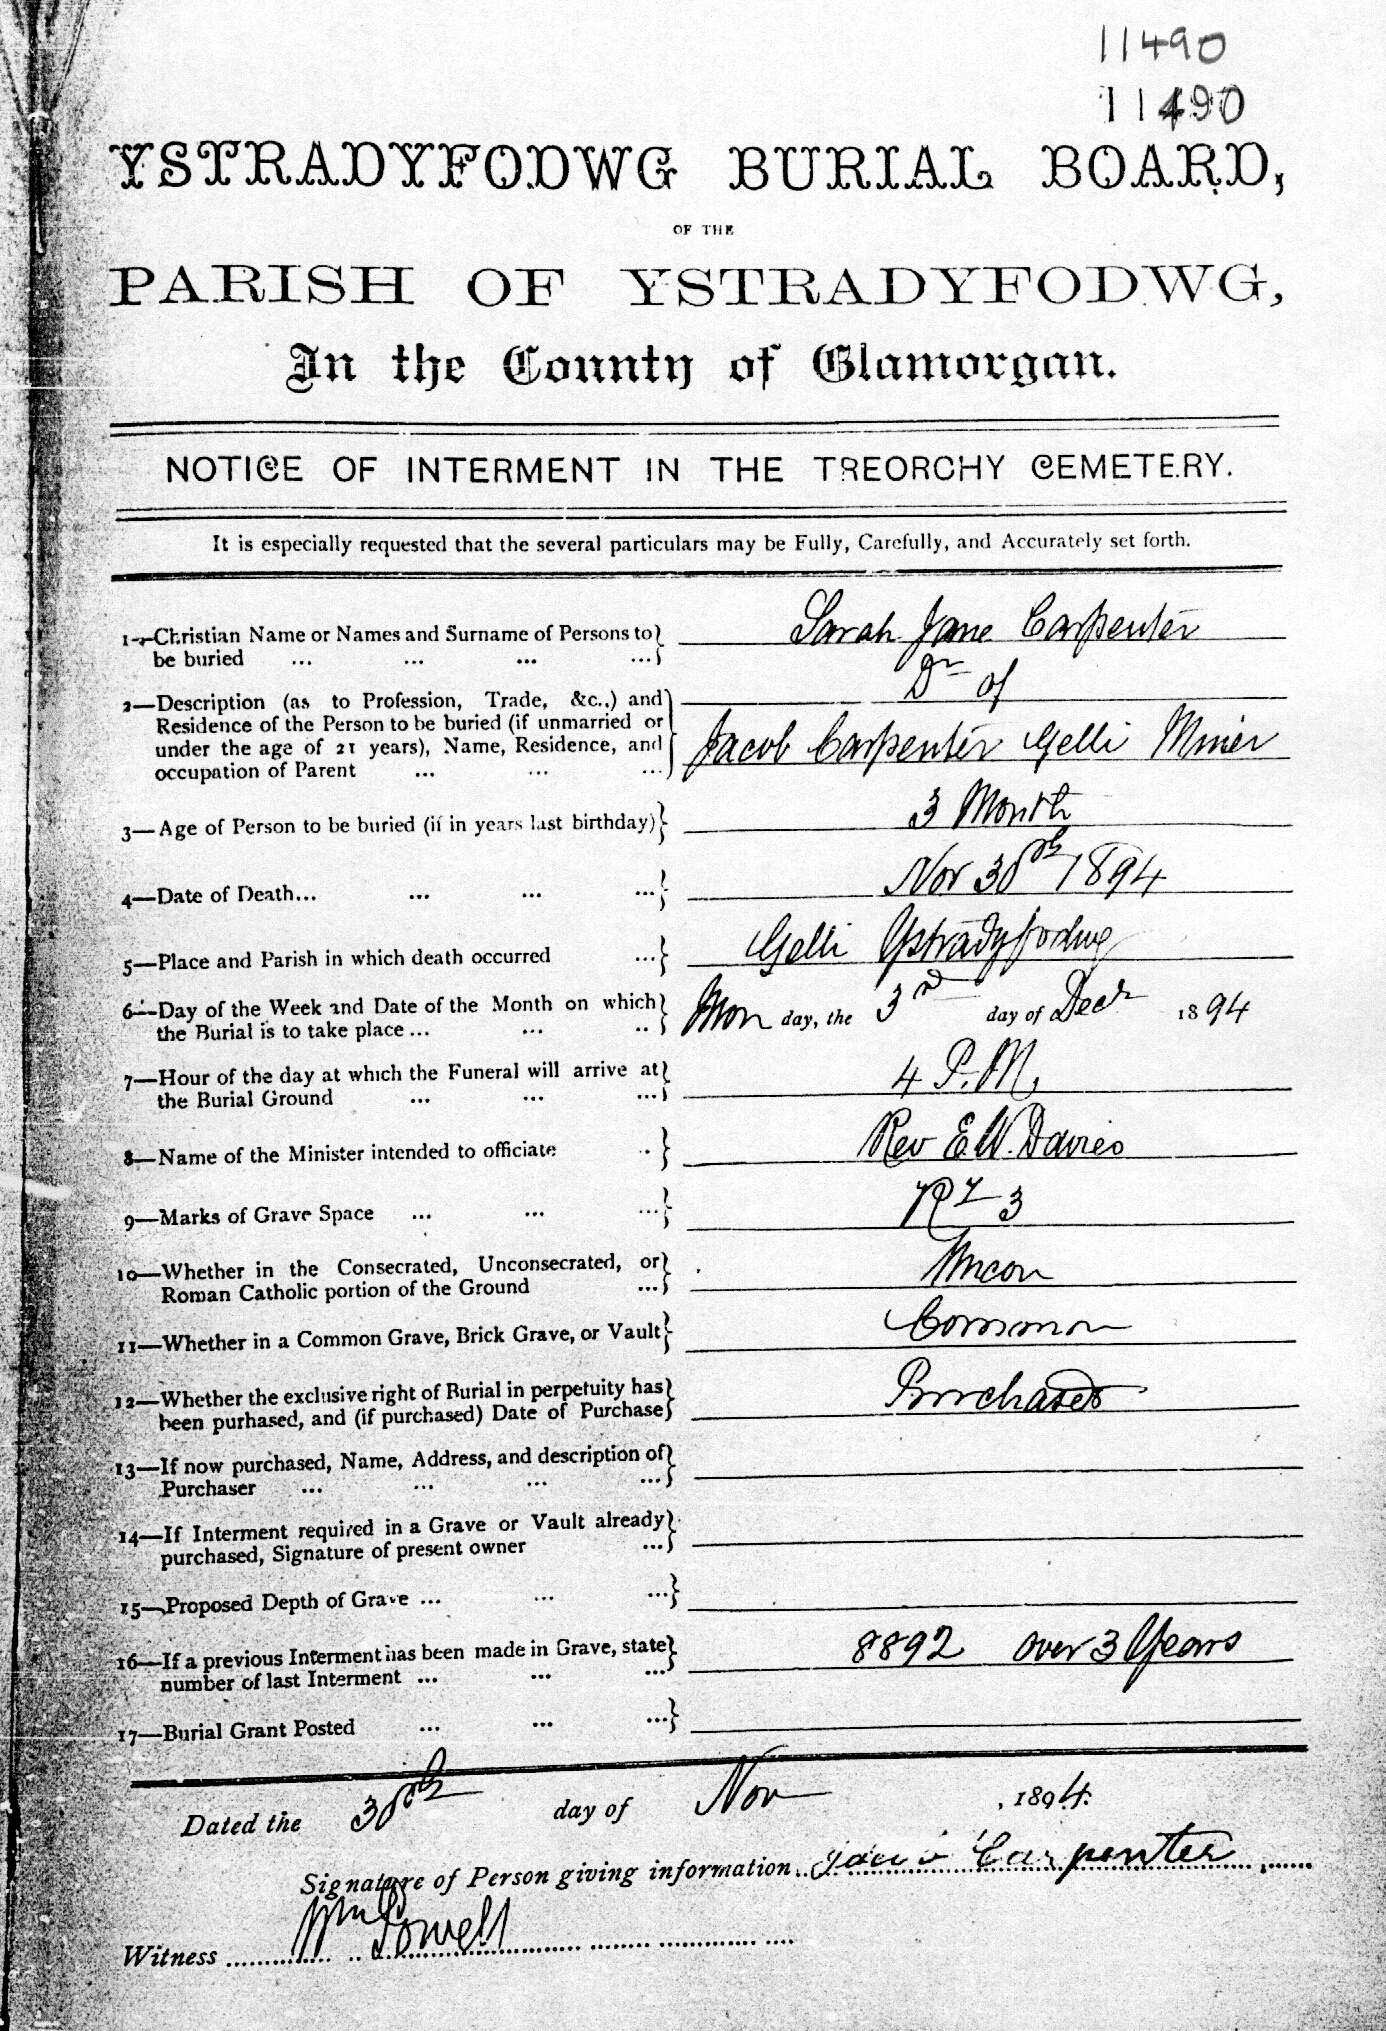 11490
11490
YSTRADYFODWG BURIAL BOARD,
OF THE
PARISH OF YSTRADYFODWG,
In the County of Glamorgan.
NOTICE OF INTERMENT IN THE TREORCHY CEMETERY.
It is especially requested that the several particulars may be Fully, Carefully, and Accurately set forth.
1—Christian Name or Names and Surname of Persons to be buried ... ... ... ...} Sarah Jane Carpenter
Dr of
2—Description (as to Profession, Trade, &c.,) and
Residence of the Person to be buried (if unmarried or
under the age of 21 years), Name, Residence, and
occupation of Parent ... ... ...} Jacob Carpenter Gelli Miner
3—Age of Person to be buried (if in years last birthday)} 3 Month
4—Date of Death... ... ... ...} Nov 30th 1894
5—Place and Parish in which death occurred ...} Gelli Ystradyfodwg
6—Day of the Week and Date of the Month on which
the Burial is to take place ... ... ..} Mon day, the 3rd day of Decr 1894
7—Hour of the day at which the Funeral will arrive at
the Burial Ground ... ... ...} 4 P.M.
8—Name of the Minister intended to officiate .} Rev E.W. Davies
9—Marks of Grave Space ... ... ...} 3
10—Whether in the Consecrated, Unconsecrated, or
Roman Catholic portion of the Ground ...} Uncon
11—Whether in a Common Grave, Brick Grave, or Vault} Common
12—Whether the exclusive right of Burial in perpetuity has
been purhased, and (if purchased) Date of Purchase} Purchased
13—If now purchased, Name, Address, and description of
Purchaser ... ... ... ...}
14—If Interment required in a Grave or Vault already
purchased, Signature of present owner ...}
15—Proposed Depth of Grave ... ... ...}
16—If a previous Interment has been made in Grave, state
number of last Interment ... ... ...} 8892 over 3 Years
17—Burial Grant Posted ... ... ...}
Dated the 30th day of Nov , 1894.
Signature of Person giving information Jacob Carpenter
Witness Wm Powell